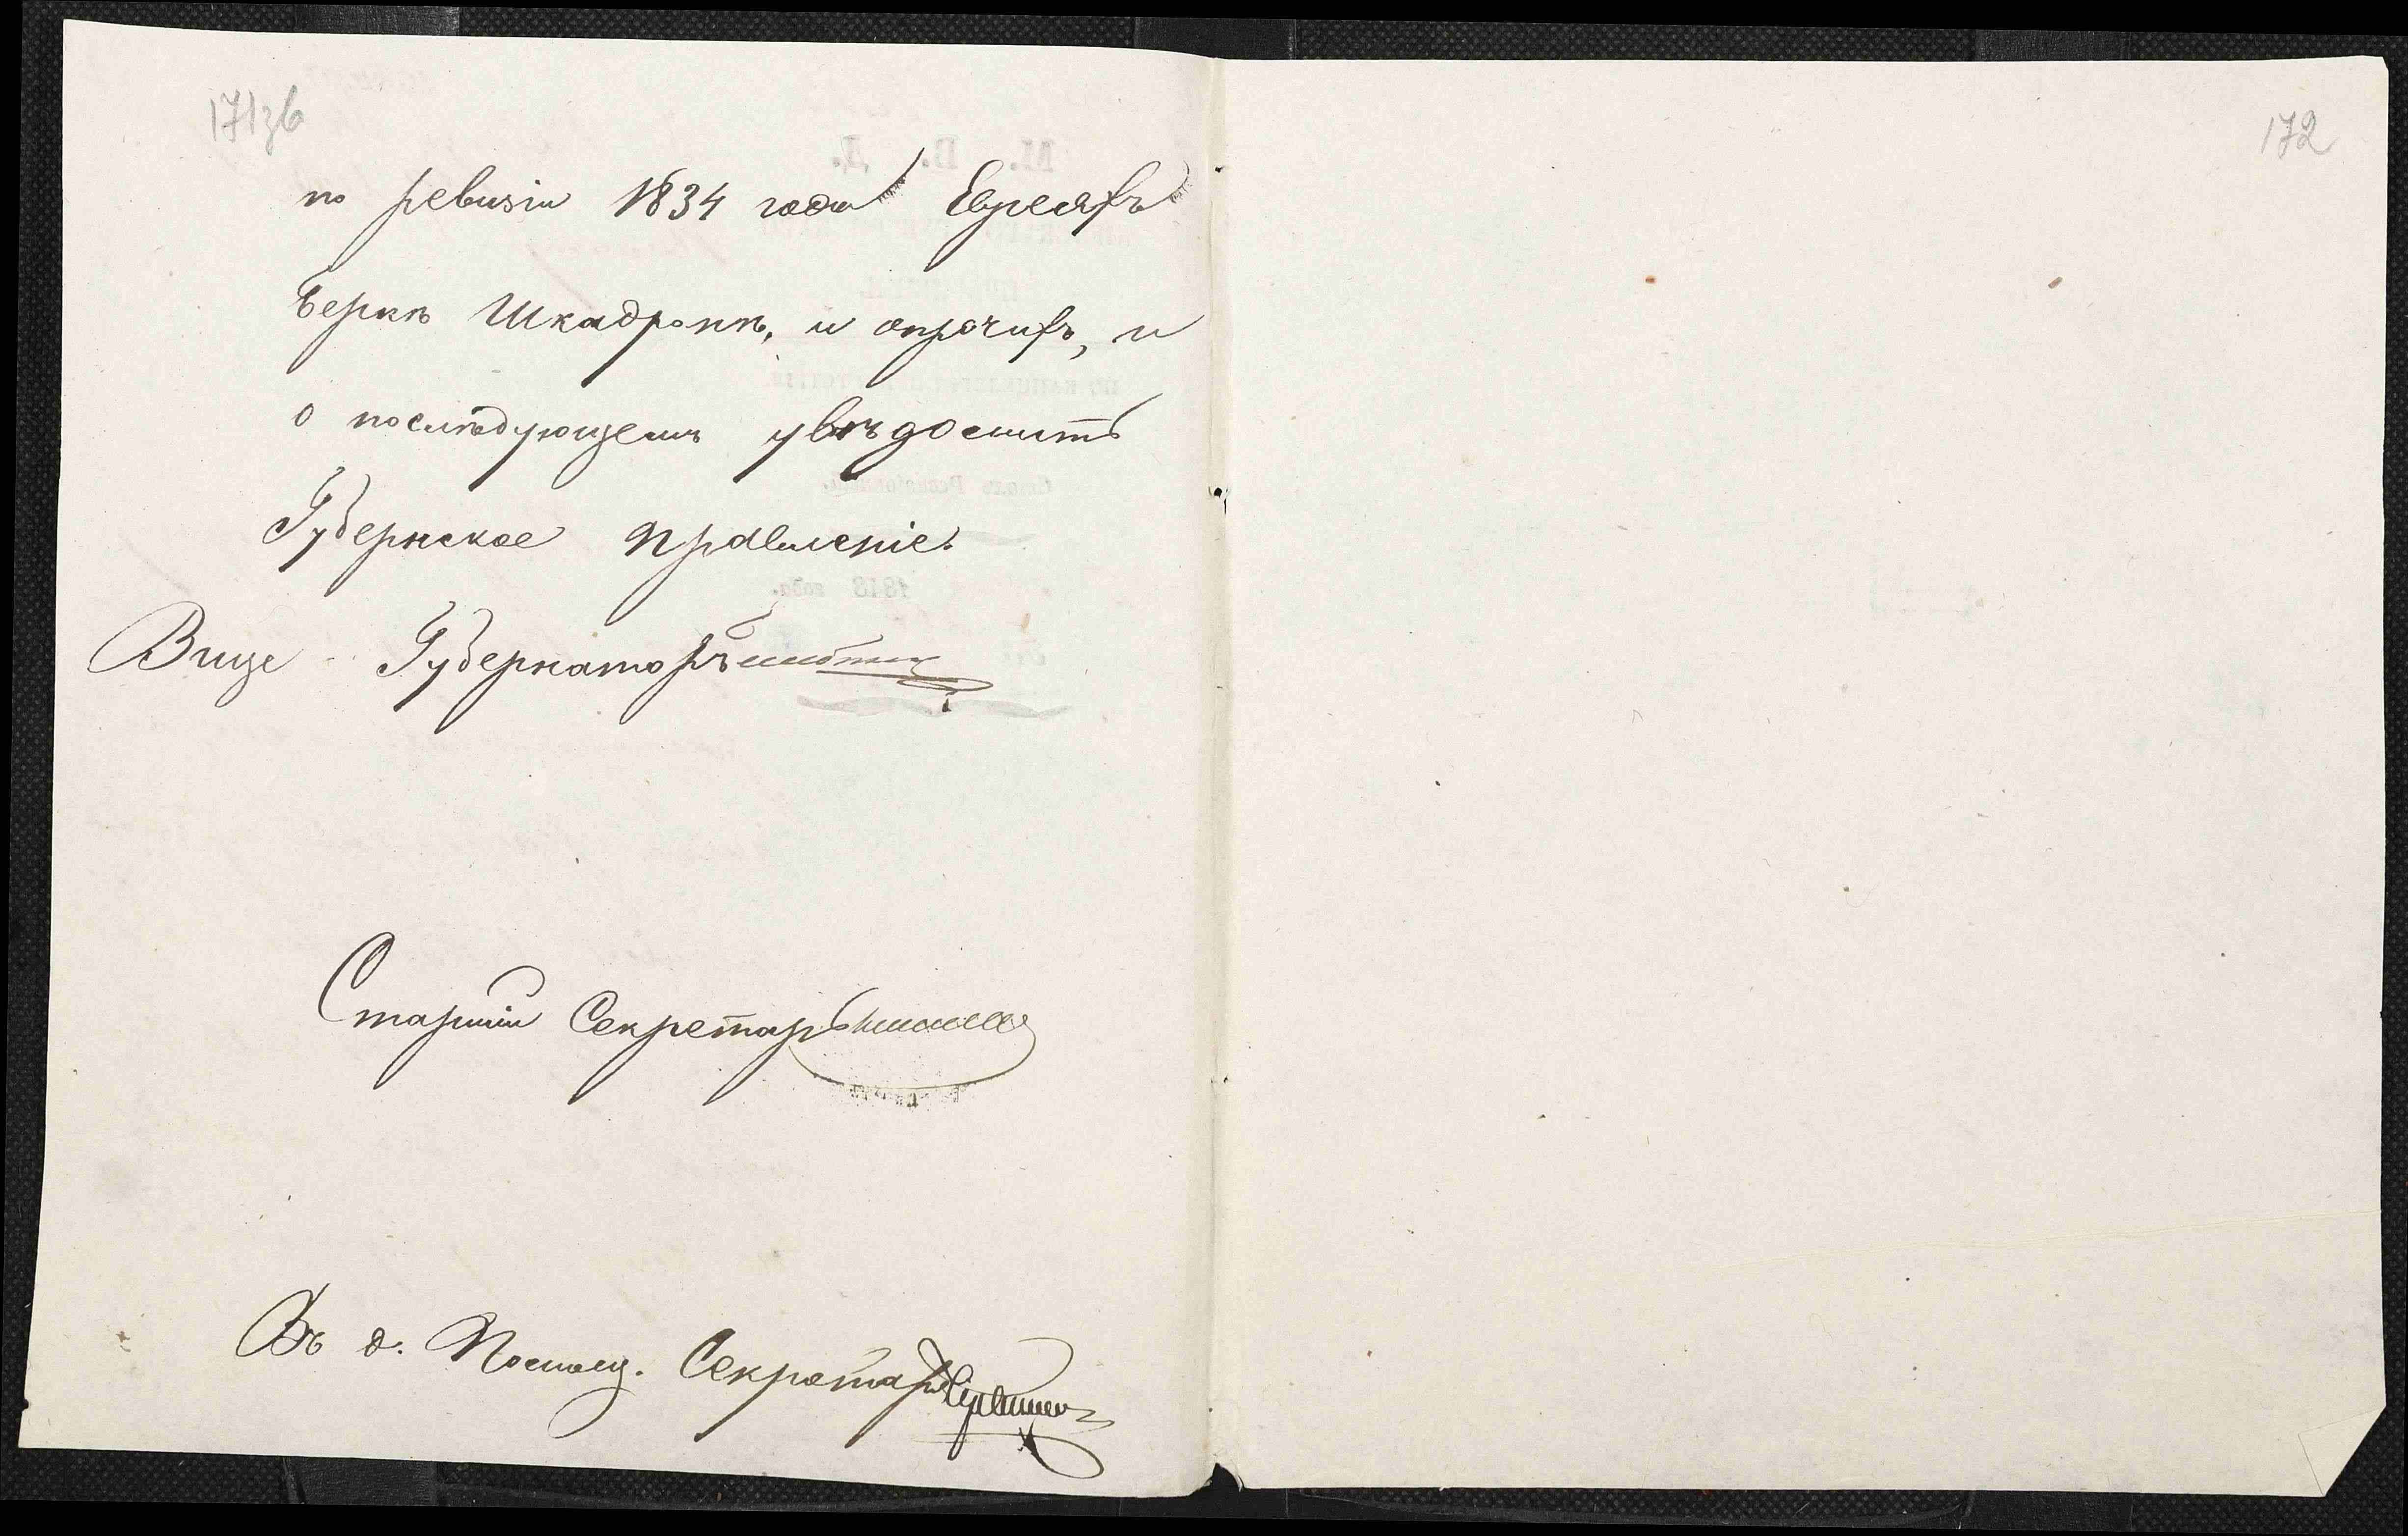 171зв
172
по ревизіи 1834 года Евреяхъ
Беркѣ Шкадронѣ, и опрочихъ, и
о послѣдующемъ увѣдомить
Губернское Правленіе.
Вице Губернаторъ
Старшій Секретарь
Въ д. Помощ. Секретаря